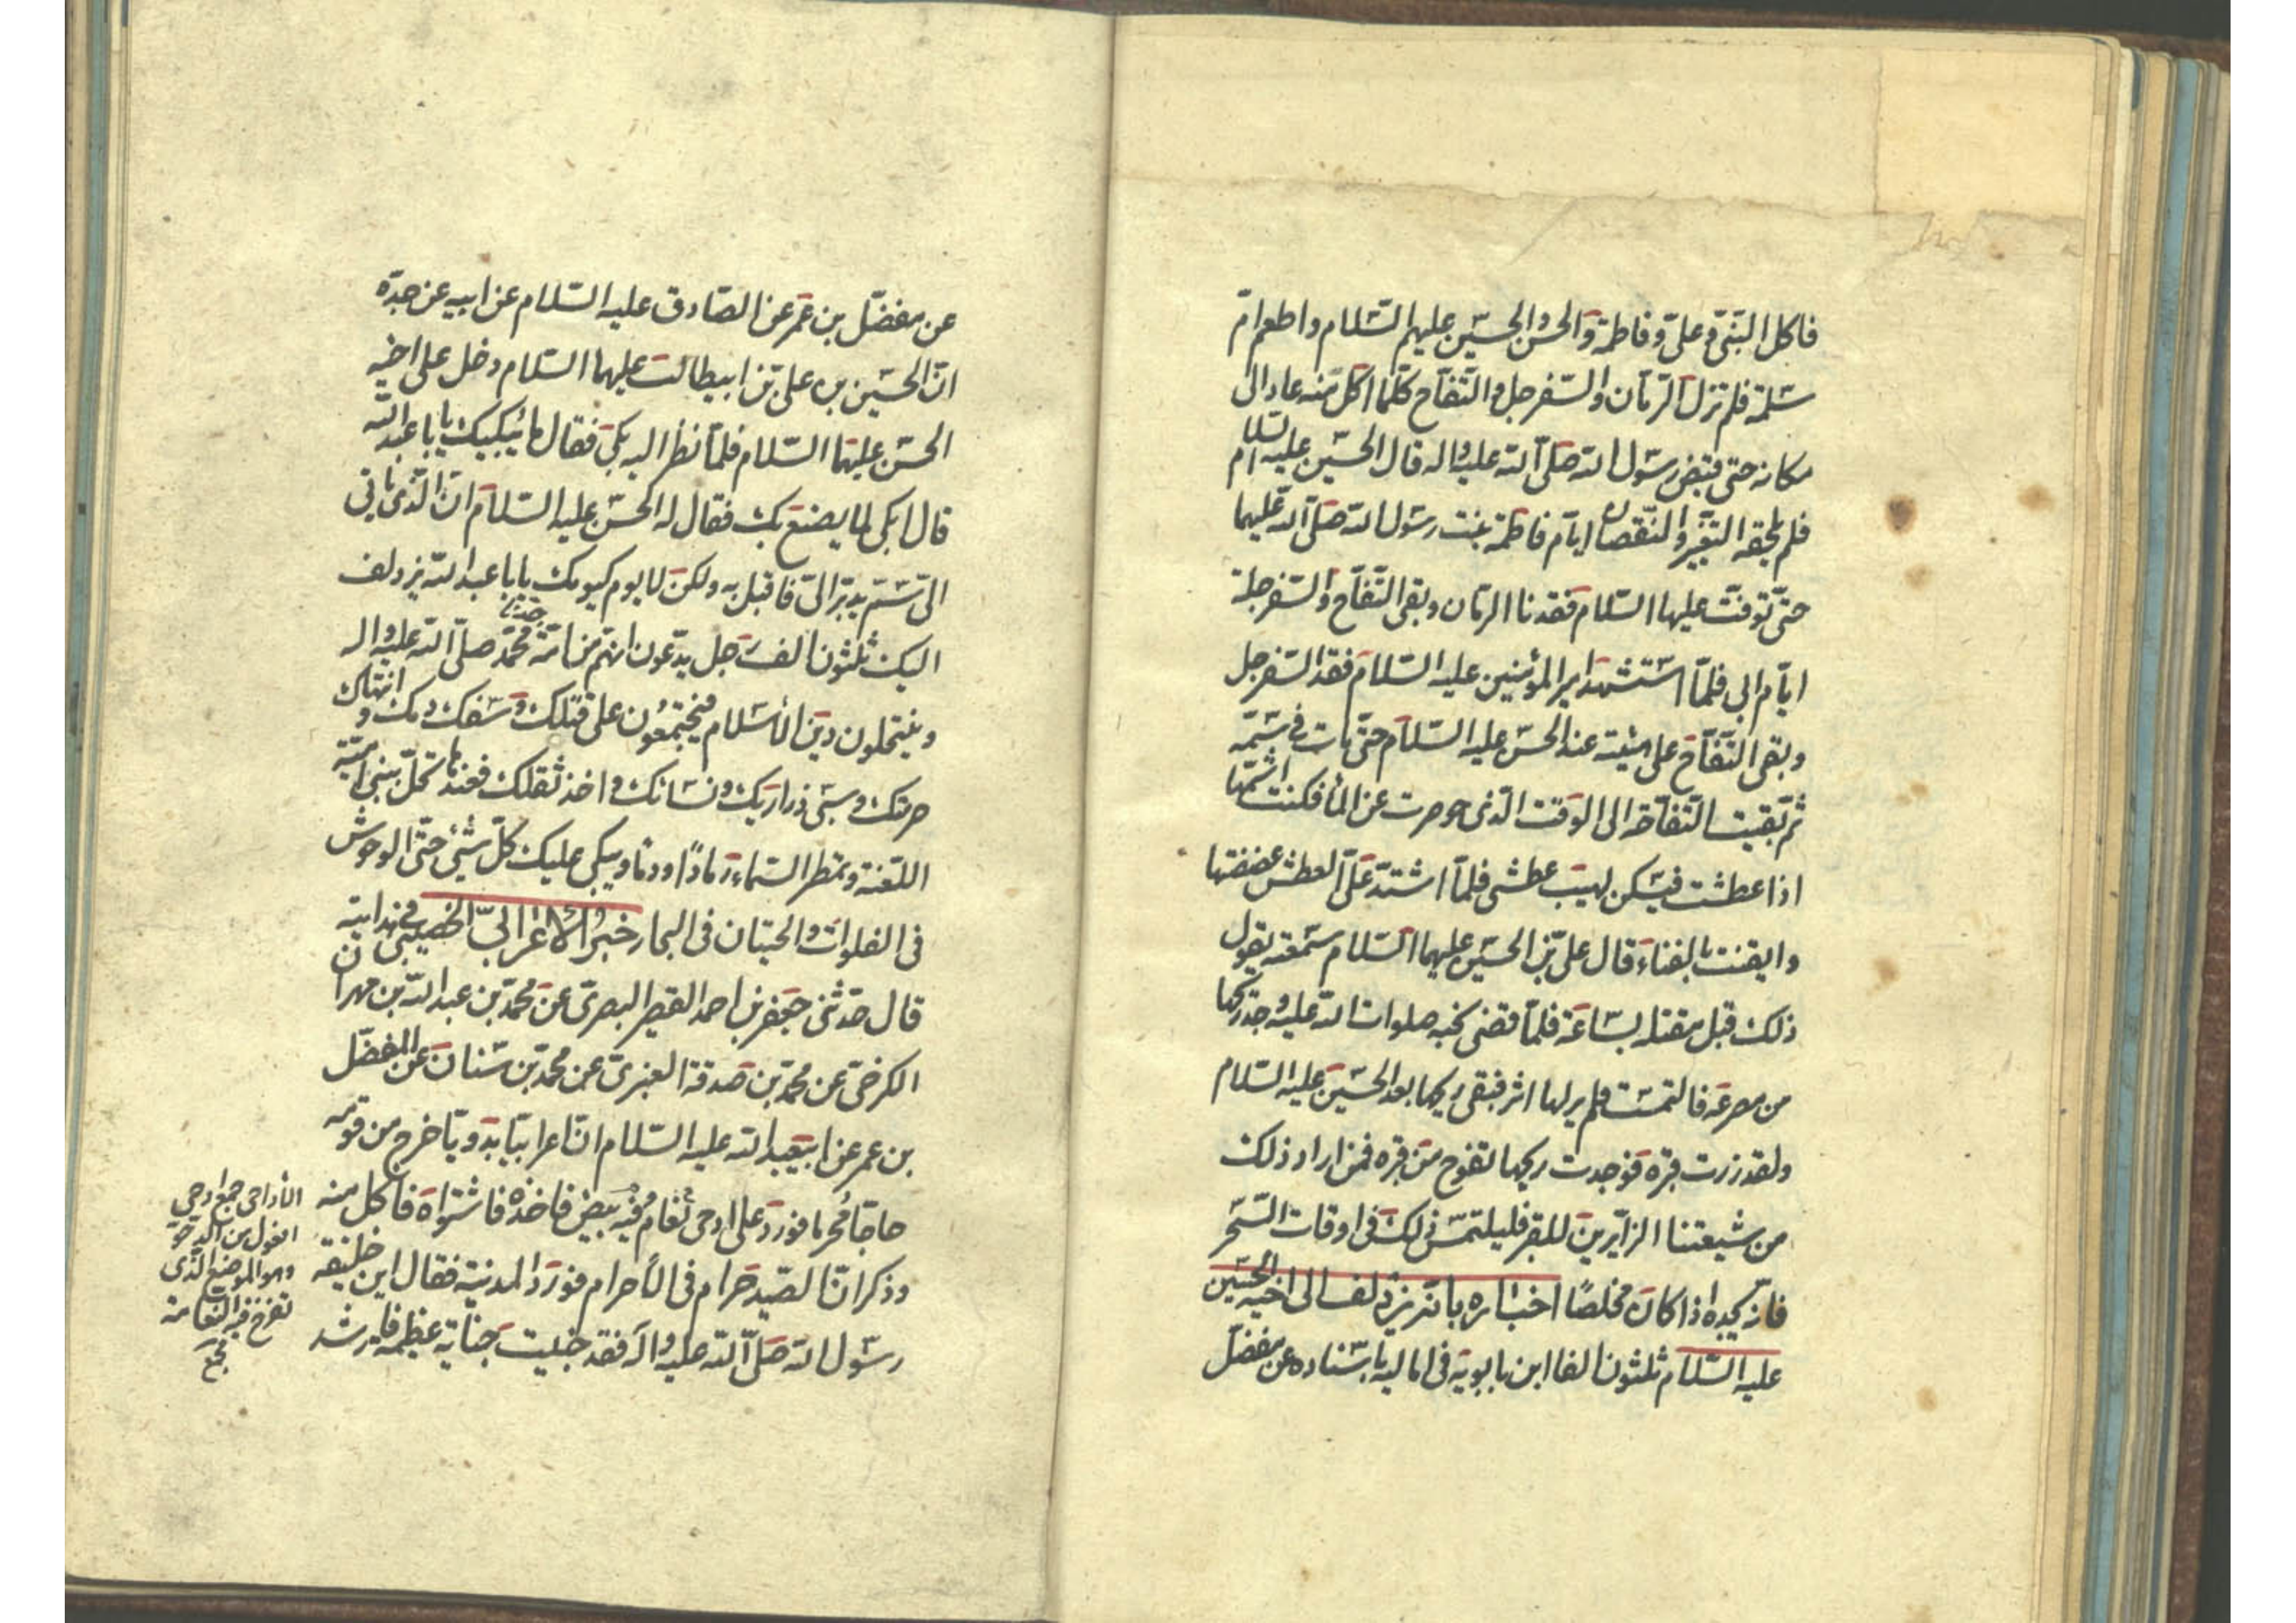 فاكل النبى وعلى وفاطمة والحسن والحسين عليهم السلام واطعم ام
سلمة فلم تزل الرمان والسفرجل والتفاح كلما اكل منه عاد الى
مكانه حتى قبض رسول الله صلى الله عليه واله قال الحسين عليه السلام
فلم يلحقه التغيير والنقصان ايام فاطمة بنت رسول الله صلى الله عليهما
حتى توفت عليها السلام فقدنا الرمان وبقى التفاح والسفرجلة
ايام ابى فلما استشهد امير المؤمنين عليه السلام فقد السفرجل
وبقى التفاح على هيئته عند الحسن عليه السلام حتى مات فى سمه
ثم بقيت التفاحة الى الوقت الذى حوصرت عن الماء فكنت اشمها
اذا عطشت فيسكن لهيب عطشى فلما اشتد على العطش عضضتها
وايقنت بالفناء قال على بن الحسين عليهما السلام سمعته يقول
ذلك قبل مقتله بساعة فلما قضى نحبه صلوات الله عليه وجد ريحها
من مصرعه فالتمست فلم ير لها اثر فبقى ريحها بعد الحسين عليه السلام
ولقد زرت قبره فوجدت ريحها تفوح من قبره فمن اراد ذلك
من شيعتنا الزايرين للقبر فليلتمس ذلك فى اوقات السحر
فانه يجده اذا كان مخلصًا اخباره بانه يزدلف الى اخيه الحسين
عليه السلام ثلثون الفا ابن بابويه فى اماليه باسناده عن مفضل
عن مفضل بن عمر عن الصادق عليه السلام عن ابيه عن جده
ان الحسين بن على بن ابيطالب عليهما السلام دخل على اخيه
الحسن عليهما السلام فلما نظر اليه بكى فقال ما يبكيك يا با عبد الله
قال ابكى لما يصنع بك فقال له الحسن عليه السلام ان الذى ياتى
الى سم يدبر الى فاقتل به ولكن لا يوم كيومك يا با عبد الله يزدلف
اليك ثلثون الف رجل يدعون انهم من امة جدنا محمد صلى الله عليه واله
وينتحلون دين الاسلام فيجتمعون على قتلك وسفك دمك وانتهاك
حرمتك وسبى ذراريك ونسائك واخذ ثقلك فعندها تحل ببنى امية
اللعنة وتمطر السماء رمادًا ودما ويبكى عليك كل شئ حتى الوحوش
فى الفلوات والحيتان فى البحار خبر الاعرابى الخصيبى فى هدايته
قال حدثنى جعفر بن احمد القصير البصرى عن محمد بن عبد الله بن مهران
الكرخى عن محمد بن صدقة العنبرى عن محمد بن سنان عن المفضل
بن عمر عن ابيعبد الله عليه السلام ان اعرابيا بدويا خرج من قومه
حاجا محرما فورد على ادحى نعام فيه بيض فاخذه فاشتواه فاكل منه
وذكر ان الصيد حرام فى الاحرام فورد المدينة فقال اين خليفة
رسول الله صلى الله عليه واله فقد جنيت جناية عظيمة فارشد
الأداحى جمع ادحى
افعول من الدحو
وهو الموضع الذى
تفرخ فيه النعامة
مجمع